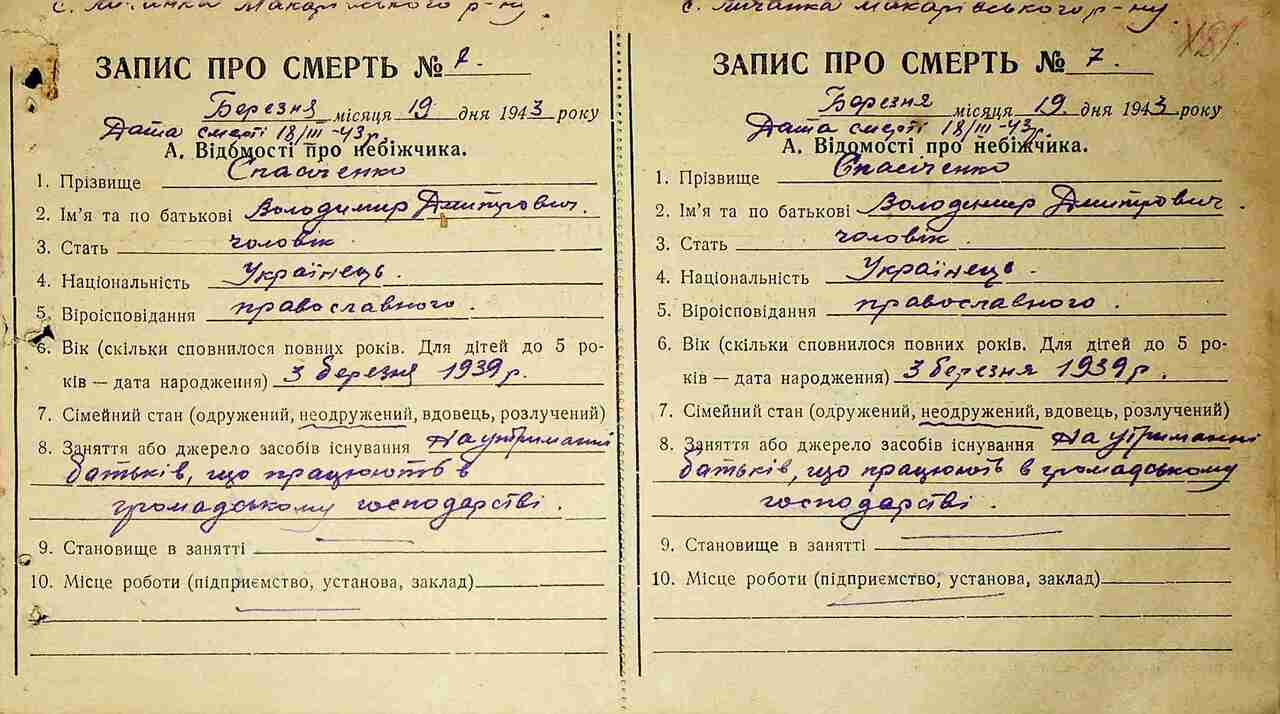 с. Личанка Макарівського р-ну
ЗАПИС ПРО СМЕРТЬ № 7.
Березня місяця 19 дня 1943 року
Дата смерті 18/III-43 р.
А. Відомості про небіжчика.
1. Прізвище Спасіченко
2. Ім'я та по батькові Володимир Дмитрович.
3. Стать чоловік
4. Національність Українець.
5. Віроісповідання православного.
6. Вік (скільки сповнилося повних років. Для дітей до 5 ро-
ків — дата народження) 3 березня 1939 р.
7. Сімейний стан (одружений, неодружений, вдовець, розлучений)
8. Заняття або джерело засобів існування На утриманні
батьків, що працюють в
громадському господарстві.
9. Становище в занятті
10. Місце роботи (підприємство, установа, заклад)
с. Личанка Макарівського р-ну.
ЗАПИС ПРО СМЕРТЬ № 7.
Березня місяця 19 дня 1943 року
Дата смерті 18/III-43 р.
А. Відомості про небіжчика.
1. Прізвище Спасіченко
2. Ім'я та по батькові Володимир Дмитрович.
3. Стать чоловік.
4. Національність Українець.
5. Віроісповідання православного.
6. Вік (скільки сповнилося повних років. Для дітей до 5 ро-
ків — дата народження) 3 березня 1939 р.
7. Сімейний стан (одружений, неодружений, вдовець, розлучений)
8. Заняття або джерело засобів існування На утриманні
батьків, що працюють в громадському
господарстві.
9. Становище в занятті
10. Місце роботи (підприємство, установа, заклад)